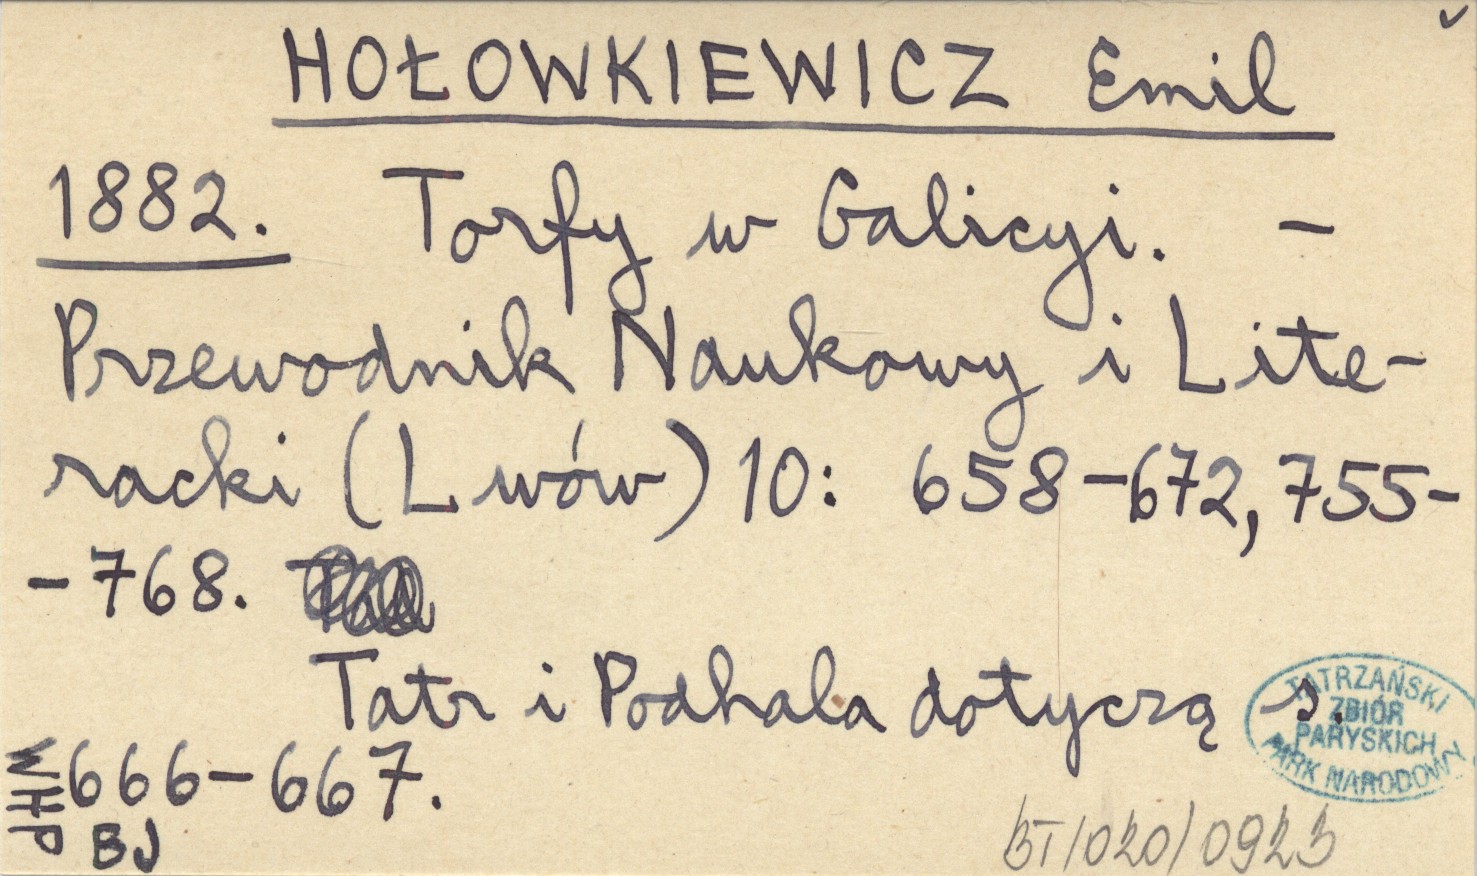 HOŁOWKIEWICZ Emil
1882. Torfy w Galicyi. –
Przewodnik Naukowy i Lite-
racki (Lwów) 10: 658-672, 755-
-768.
Tatr i Podhala dotyczą s.
666-667.
WHP
BJ
TATRZAŃSKI
ZBIÓR
PARYSKICH
PARK NARODOWY
BT/020/0923